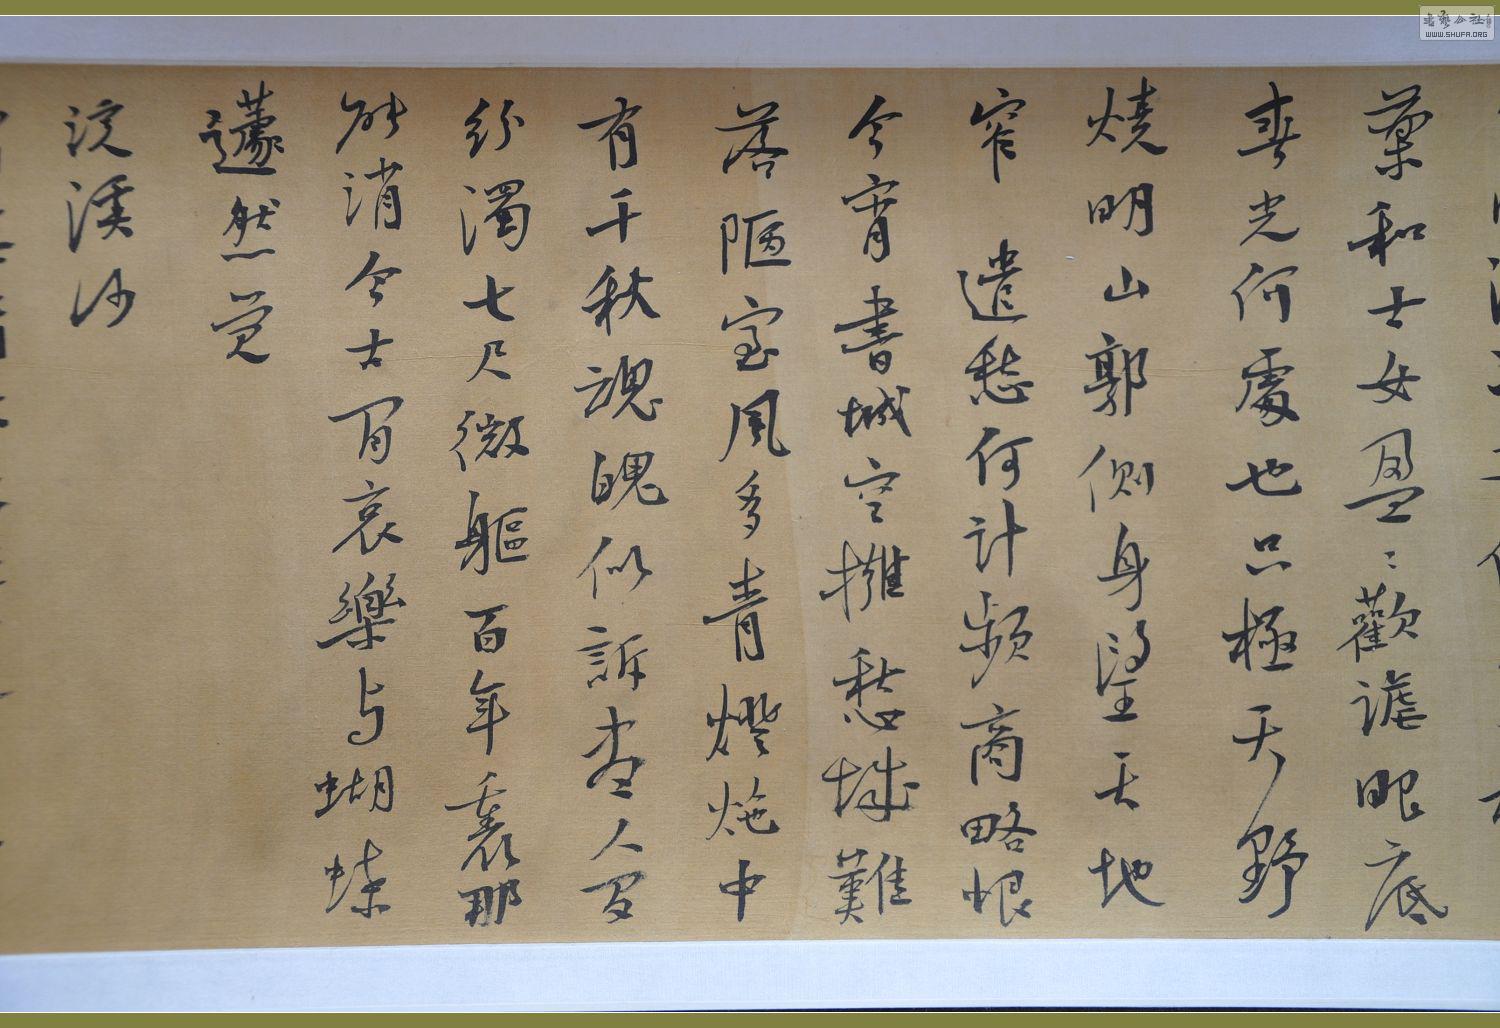 藥和士女盈盈歡謔眼底
春光何處也只極天野
燒明山郭側身望天地
窄 遣愁何計頻商略恨
今宵書城空擁愁城難
落陋室風多青燈灺中
有千秋魂魄似訴盡人间
紛濁七尺微軀百年裏那
能消今古间哀樂与蝴蝶
蘧然觉
浣溪沙
书艺公社
WWW.SHUFA.ORG